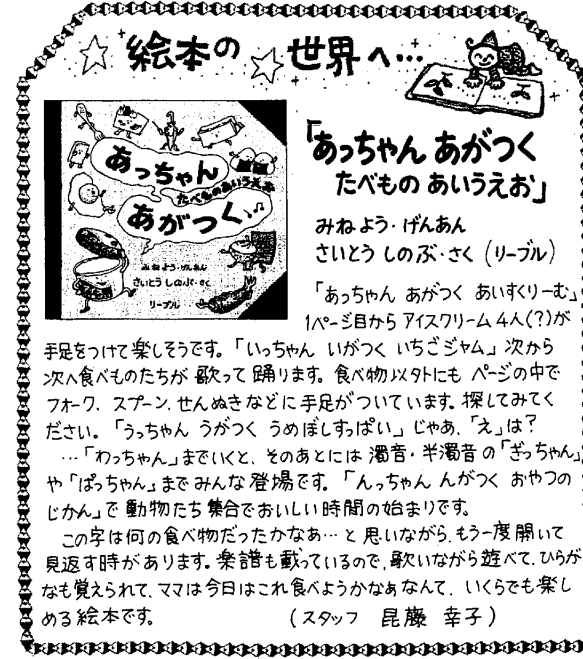 絵本の世界へ…
あっちゃん
たべものあいうえお
あがつく
みねよう・げんあん
さいとうしのぶ・さく
リーブル
「あっちゃん あがつく
たべもの あいうえお」
みねよう・げんあん
さいとう しのぶ・さく (リーブル)
「あっちゃん あがつく あいすくりーむ」
1ページ目から アイスクリーム 4人(?)が
手足をつけて楽しそうです。「いっちゃん いがつく いちごジャム」次から
次へ食べものたちが 歌って 踊ります。食べ物以外にも ページの中で
フォーク、スプーン、せんぬきなどに手足がついています。探してみてく
ださい。「うっちゃん うがつく うめぼしすっぱい」じゃあ、「え」は?
…「わっちゃん」までいくと、そのあとには 濁音・半濁音の「ぎっちゃん」
や「ぱっちゃん」までみんな登場です。「んっちゃん んがつく おやつの
じかん」で 動物たち集合でおいしい時間の始まりです。
この字は何の食べ物だったかなあ…と思いながら、もう一度開いて
見返す時があります。楽譜も載っているので、歌いながら遊べて、ひらが
なも覚えられて、ママは今日はこれ食べようかなあなんて、いくらでも楽し
める絵本です。 (スタッフ 昆藤 幸子)